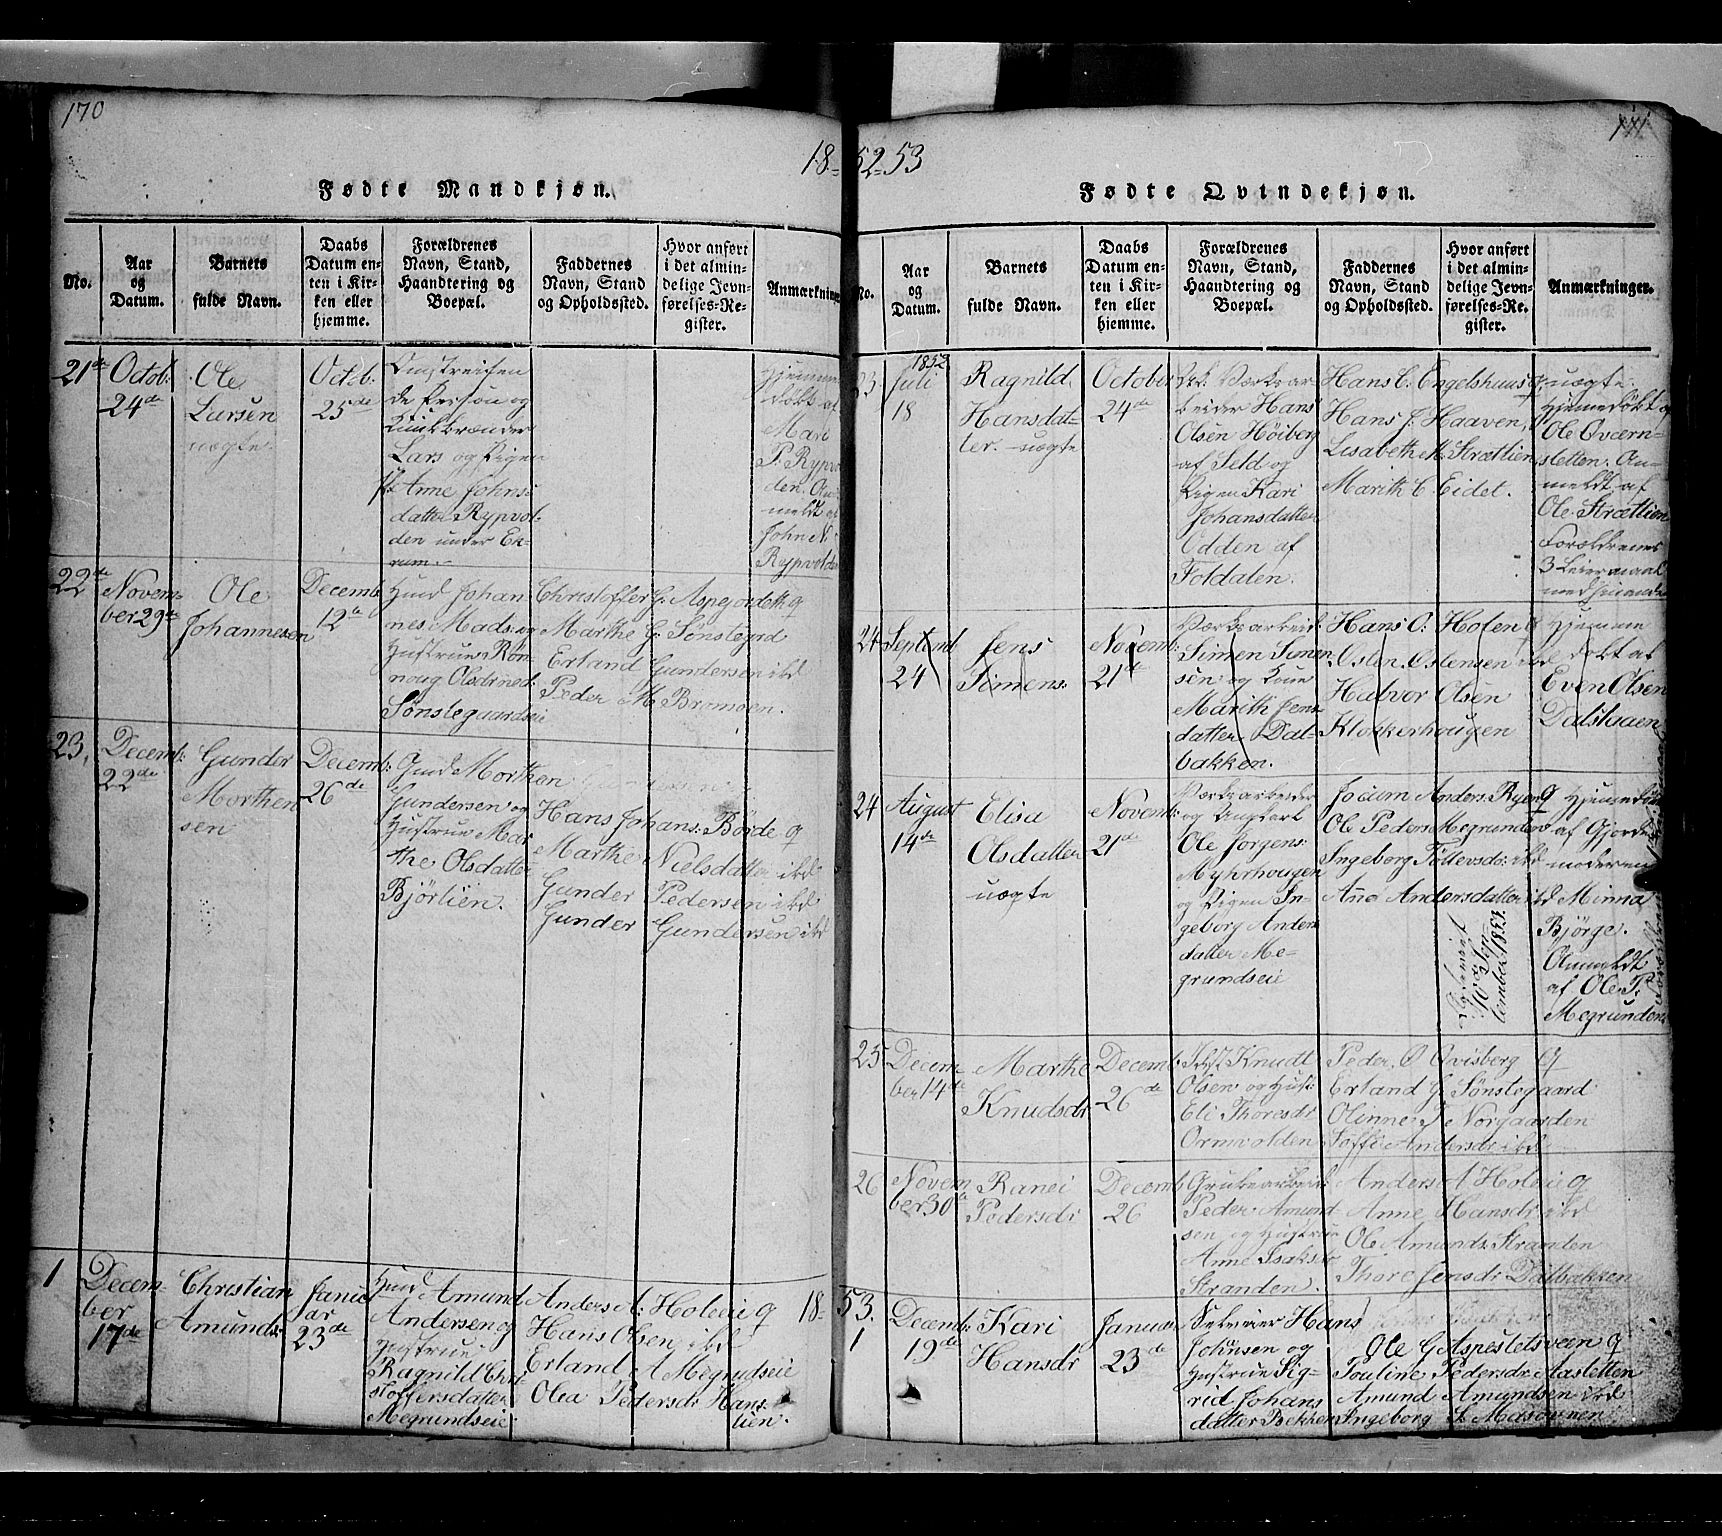 170
18-
Fødte Mandkjøn.
No.
Aar
og
Datum.
Barnets
fulde Navn.
Daabs
Datum en-
ten i Kir-
ken eller
hjemme.
Forældrenes
Navn, Stand,
Haandtering og
Boepæl.
Faddernes
Navn, Stand
og Opholdssted.
Hvor anført
i det almin-
delige Jevn-
førelses-Re-
gister.
Anmærkninger
21de
Octob:
24de
Ole
Larsen
uægte.
Octb.
25de
de Person og
Lars og Pigen
Anne Johns:
datter Rypvol-
den under
Hjemme
døbt af
Mari
P. Rypvol
den. An
meldt af
John N.
Rypvolden
22de
Novem-
ber 29de
Ole
Johannesen
Decemb
12te
Huusd Johan
nes Mads: og
Hustrue Røn-
noug Olsdtr ned:
Sønstegaardseie
Christoffer G. Aspejordeth g
Marthe G: Sønstegrd
Erland Gundersen ibd
Peder M. Bromoen.
23,
Decemb:
22de
Gunder
Morthen
sen
Decemb:
26de
Gmd Morthen
Gundersen og
Hustrue Mar
the Olsdatter
Bjørlien.
Hans Johans: Børde g
Marthe Nielsdatter ibd
Gunder Pedersen ibd
Gunder Gundersen ibd
1
Decem-
ber
17de
Christian
Amunds:
Janu
ar
23de
Huusd Amund
Andersen og
Hustrue
Ragnild Chri
stoffersdatter
Megrundseie
Anders A: Holeie g
Hans Olsen ibd
Erland A Megrudseie
Olea Pedersdr Hans
lien.
18-
171
52=53
Fødte Qvindekjøn.
No.
Aar
og
Datum.
Barnets
fulde Navn.
Daabs
Datum en-
ten i Kir-
ken eller
hjemme.
Forældrenes
Navn, Stand
Haandtering og
Boepæl.
Faddernes
Navn, Stand
og Opholdssted.
Hvor anført
i det almin-
delige Jevn-
førelses-Re-
gister.
Anmærkninger.
23
1852
Juli
18
Ragnild
Hansdat-
ter. uægte
October
24de
Værksar
beider Hans
Olsen Høiberg
af Seld og
Pigen Kari
Johansdatter
Odden af
Foldalen.
Hans C. Engelshuus g
Hans J. Haaven,
Lisabeth M. Strættien
Marith C Eidet.
uægte.
Hjemedøbt af
Ole Qværn-
sletten. An-
meldt af
Ole Strættien
Forældrenes
3 Leiermaal
24
Septemb
24
Jens
Simens:
Novemb:
21de
Værksarbeid:
Simen Simen
sen og Kone
Marith Jens
datter Dal-
bakken.
Hans O: Holen g
Osten Ostensen ibd
Halvor Olsen
Klokkerhougen
Hjemme
døbt af
Even Olsen
Dalshauen
24
August
14de
Elisa
Olsdatter
uægte
Novemb:
21de
Værksarbeider
og Ungkarl
Ole Jørgens:
Myhrhougen
og Pigen In-
geborg Anders
datter Me-
grundseie
Jocum Anders: Ryen g
Ole Peders: Megrunden
Ingeborg Tollevsdr: ibd
Ane Andersdatter ibd
10de Sep-
tember 1853.
Hjemedøbt
af Gjorde
moderen
Minna
Bjørge.
Anmeldt
af Ole P:
Megrunden
25
Decem
ber 14de
Marthe
Knudsdr
Decemb:
26de
Knudt
Olsen og Hust:
Eli Thoresdr
Ormvolden
Peder. O Qvisberg g
Erland G Sønstegaard
Olinne J Norgaarden
Toffe Andersdr ibd
26
Novem
ber 30te
Ranei
Pedersdr
Decemb
26
Grubearbeid:
Peder Amund
sen og Hustrue
Anne Isaksdr
Stranden.
Anders A Holeie g
Anne Hansdr ibd
Ole Amunds: Stranden
Thore Jensdr Dalbakken
53.
1
Decemb:
19de
Kari
Hansdr
Januar
23de
Selveier Hans
Johnsen og
Hustrue Sig-
rid Johans
datter Bekken
Ole G Aspestetsveen g
Pouline Pedersdr Aasletten
Amund Amundsen ibd
Ingeborg S Masovnen